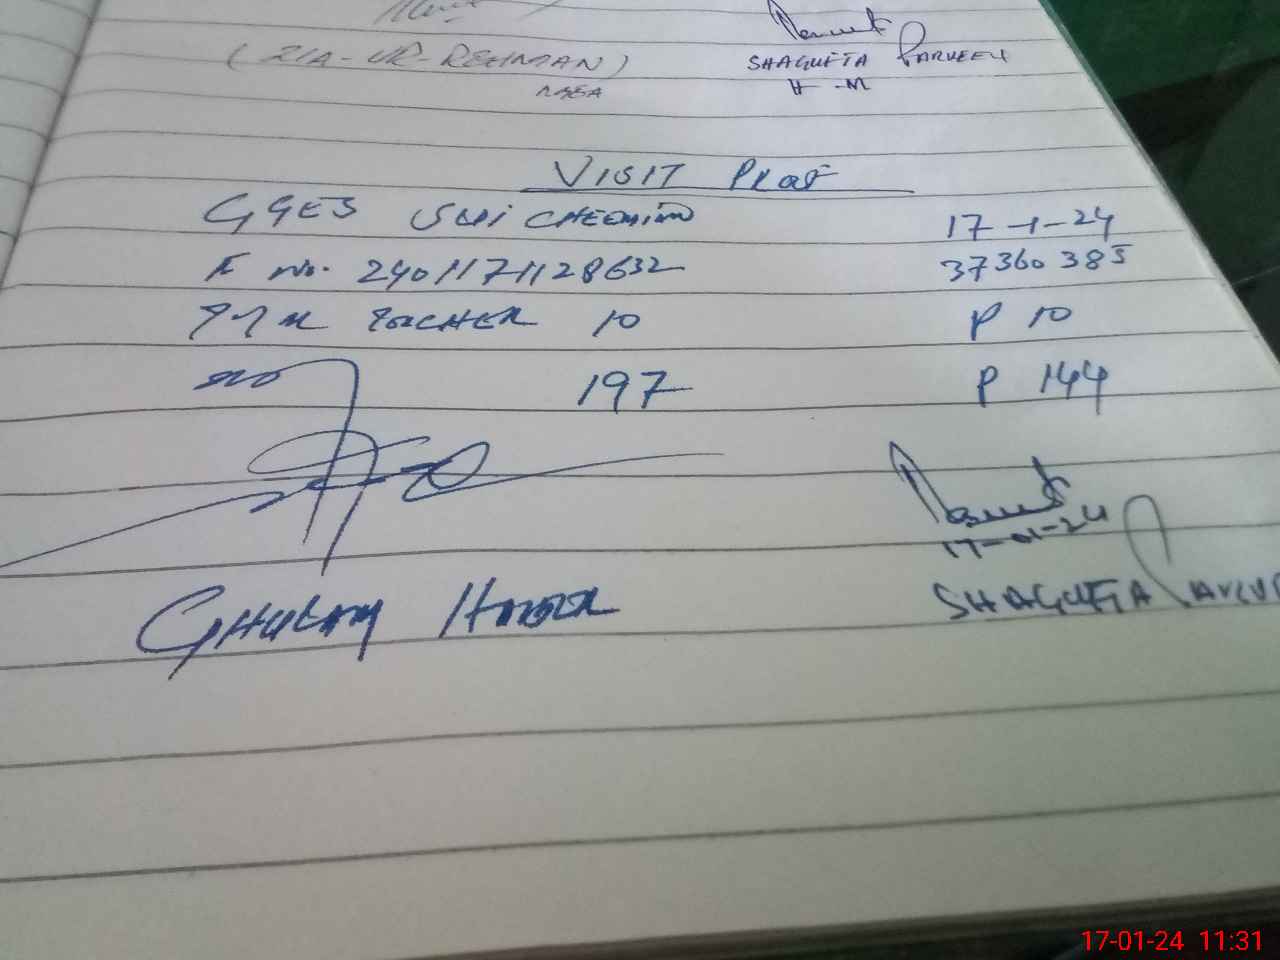 (ZIA-UR-REHMAN)
SHAGUFTA PARVEEN
H-M
VISIT Proof
GGES SUI CHEEMIAN 17-1-24
F No. 2401171128632 37360385
TEACHER 10 P 10
197 P 144
17-01-24
GHULAM
SHAGUFTA
17-01-24 11:31